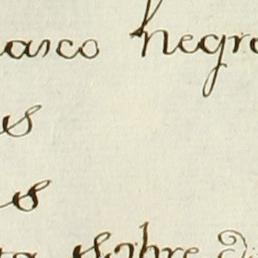 asco negro
s
s
ta sobre